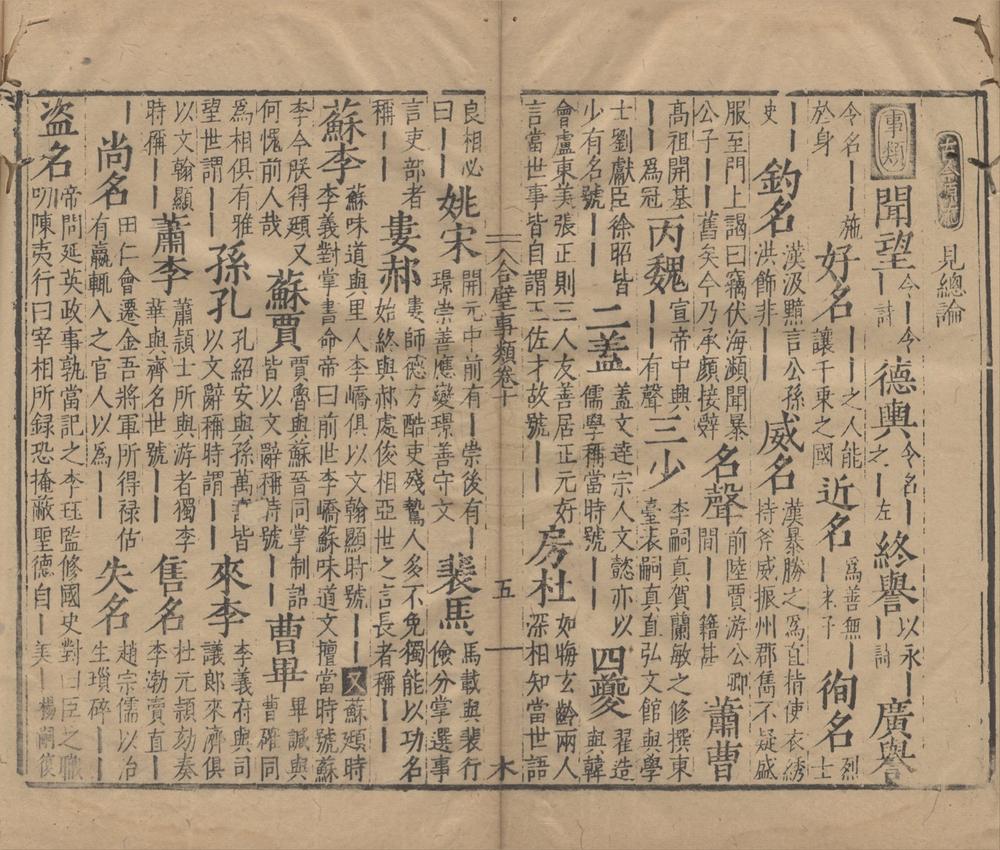 古今源流 見總論
事類 聞望令｜令｜詩 德輿令名｜之｜左 終譽以永｜詩 廣譽
令名｜｜施於身 好名｜｜之人能讓千乗之國 近名為善無｜｜莊子 徇名烈士
｜｜史 釣名漢汲黯言公孫洪飾非｜｜ 威名漢暴勝之為直指使衣綉持斧威振州郡雋不疑盛
服至門上謁曰竊伏海瀕聞暴公子｜｜舊矣今乃承顔接辤 名聲前陸賈游公卿間｜｜籍甚 蕭曹
高祖開基｜｜為冠 丙魏宣帝中興｜｜有聲 三少李嗣真賀蘭敏之修撰東臺表嗣真直弘文館與學
士劉獻臣徐昭皆少有名號｜｜ 二蓋蓋文達宗人文懿亦以儒學稱當時號｜｜ 四夔崔造與韓
會盧東美張正則三人友善居正元好言當世事皆自謂王佐才故號｜｜ 房杜如晦玄齡兩人深相知當世語
合璧事類卷十 五 木
良相必曰｜｜ 姚宋開元中前有｜崇後有｜璟崇善應變璟善守文 裴馬馬載與裴行儉分掌選事
言吏部者稱｜｜ 婁郝婁師德方酷吏殘鷙人多不免獨能以功名始終與郝處俊相亞世之言長者稱｜｜
蘇李蘇味道與里人李嶠俱以文翰顯時號｜｜又蘇頲時李乂對掌書命帝曰前世李嶠蘇味道文擅當時號蘇
李今朕得頲又何愧前人哉 蘇賈賈魯與蘇晉同掌制誥皆以文辭稱時號｜｜ 曹畢畢諴與曹確同
為相俱有雅望世謂｜｜ 孫孔孔紹安與孫萬壽皆以文辭稱時謂｜｜ 來李李義府與司議郎來濟俱
以文翰顯時稱｜｜ 蕭李蕭頴士所與游者獨李華與齊名世號｜｜ 售名杜元頴劾奏李渤賣直｜｜
尚名田仁會遷金吾將軍所得祿估有贏輒入之官人以為｜｜ 失名趙宗儒以治生瑣碎｜｜
盗名帝問延英政事孰當記之李珏監修國史對曰臣之職叨陳夷行曰宰相所録恐掩蔽聖德自｜美｜楊嗣復